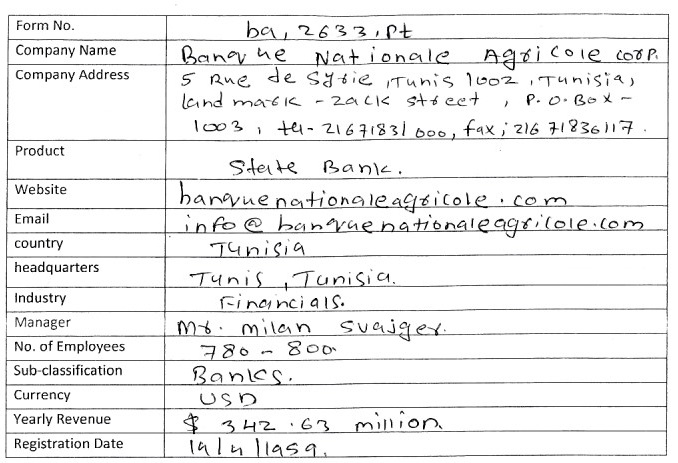 Form No. ba, 2633, pt
Company Name Banque Nationale Agricole corp.
Company Address 5 Rue de Syrie, Tunis 1002, Tunisia,
landmark - zack street, P.O.Box -
1003, tel- 21671831 000, fax; 216 71836117.
Product State Bank.
Website banquenationaleagricole.com
Email info@banquenationaleagricole.com
country Tunisia
headquarters Tunis, Tunisia.
Industry Financials.
Manager Mr. milan svajger.
No. of Employees 780 - 800
Sub-classification Banks.
Currency USD
Yearly Revenue $ 342.63 million
Registration Date